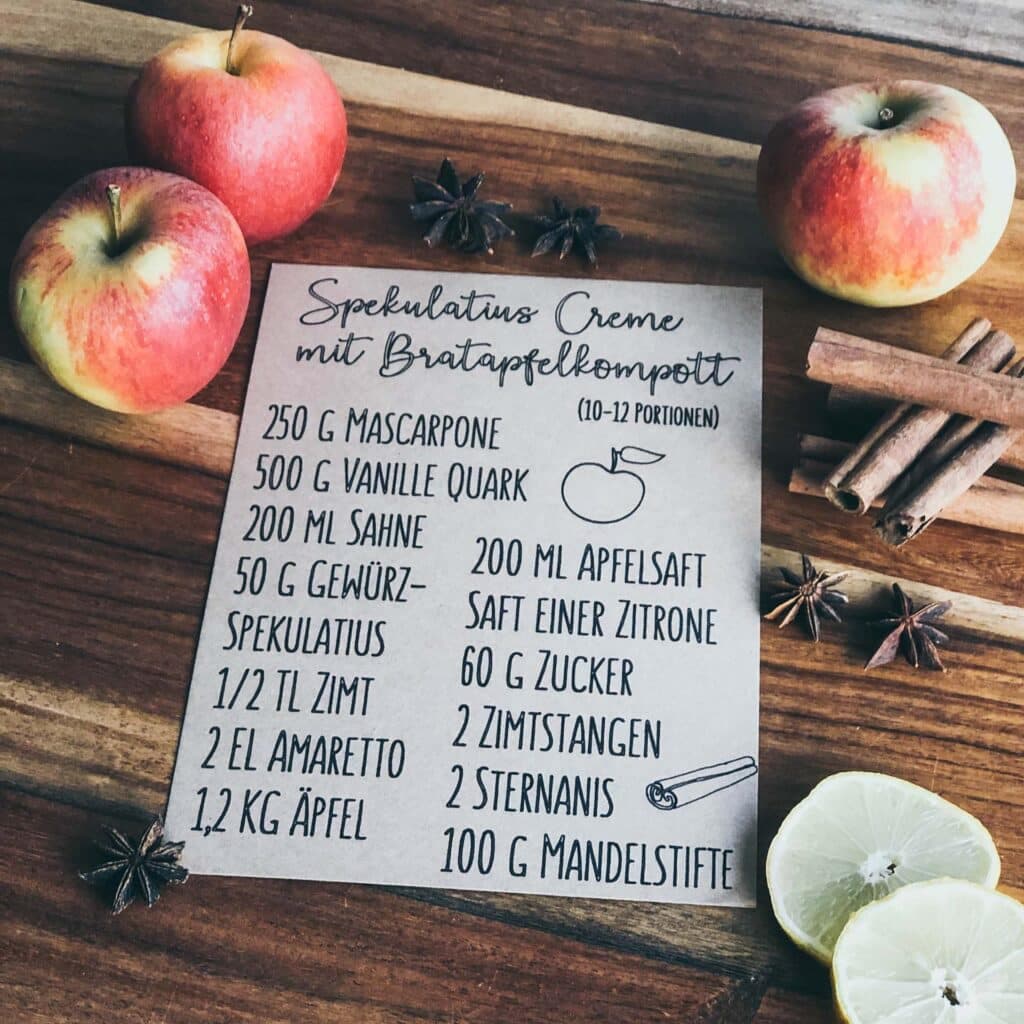 Spekulatius Creme
mit Bratapfelkompott
(10-12 PORTIONEN)
250 G MASCARPONE
500 G VANILLE QUARK
200 ML SAHNE
50 G GEWÜRZ-
SPEKULATIUS
1/2 TL ZIMT
2 EL AMARETTO
1,2 KG ÄPFEL
200 ML APFELSAFT
SAFT EINER ZITRONE
60 G ZUCKER
2 ZIMTSTANGEN
2 STERNANIS
100 G MANDELSTIFTE